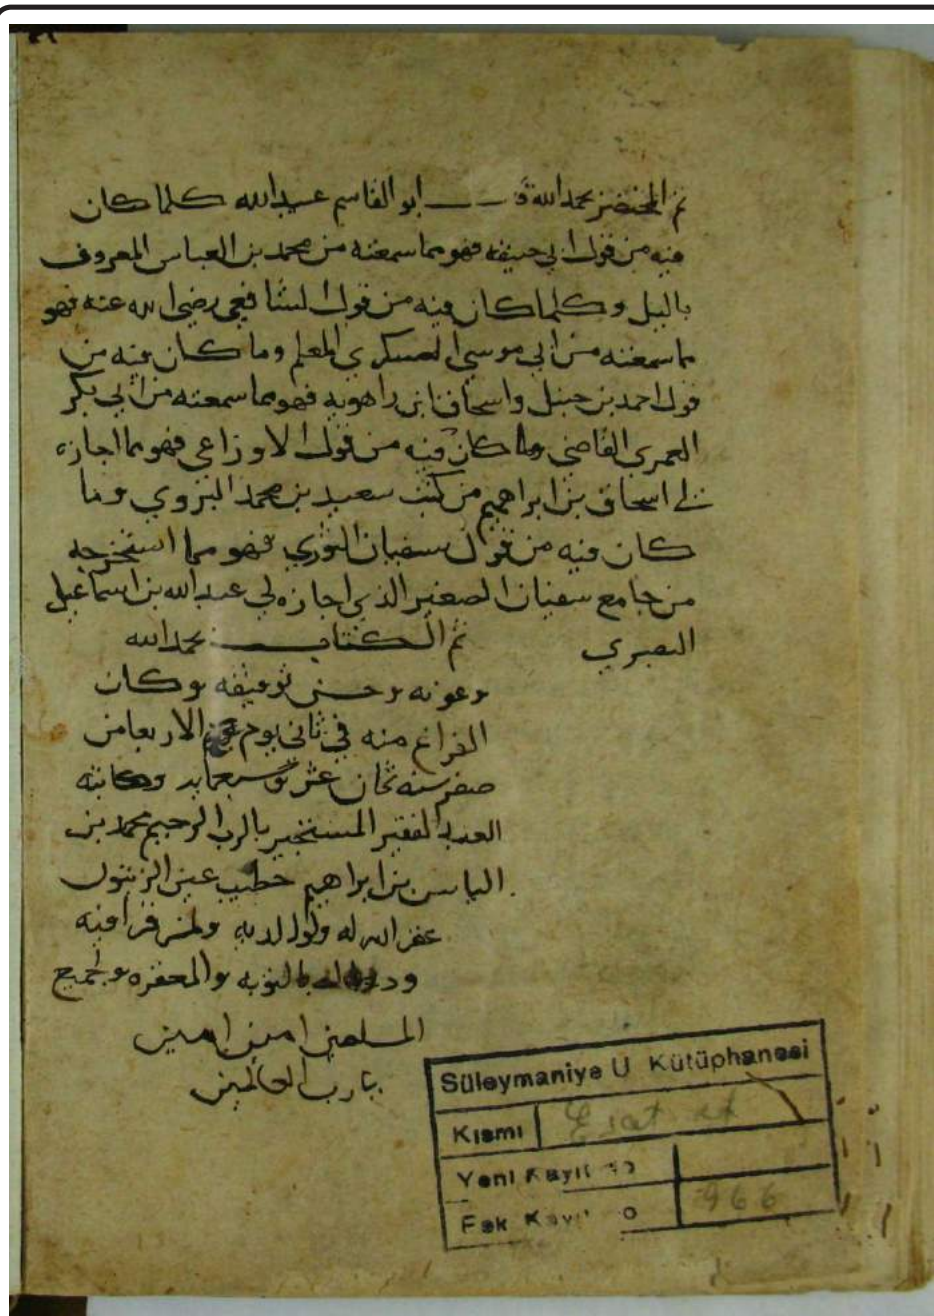 تم المختصر بحمد الله قال ابو القاسم عبد الله كلما كان
فيه من قول ابي حنيفه فهو مما سمعته من محمد بن العباس المعروف
بالبل وكلما كان فيه من قول الشافعي رضي الله عنه فهو
ما سمعته من ابي موسي العسكري المعلم وما كان فيه من
قول احمد بن حنبل واسحاق ابن راهويه فهو مما سمعته من ابي بكر
العمري القاضي وما كان فيه من قول الاوزاعي فهو مما اجازه
لي اسحاق بن ابراهيم من كتب سعيد بن محمد البزوي وما
كان فيه من قول سفيان الثوري فهو مما استخرجه
من جامع سفيان الصغير الذي اجازه لي عبد الله بن اسماعيل
البصري تم الكتاب بحمد الله
وعونه وحسن توفيقه وكان
الفراغ منه في ثاني يوم الاربعا من
صفر سنه ثمان عشر وسبعمايه وكاتبه
العبد الفقير المستجير بالرب الرحيم محمد بن
الياس بن ابراهيم خطيب عين الزيتون
غفر الله له ولوالديه ولمن قرا فيه
بالتوبه والمغفره ولجميع
المسلمين امين امين
يارب العالمين
Süleymaniye U Kütüphanesi
Kısmı Esat ef
Yeni Kayıt No
Esk Kayıt No 966